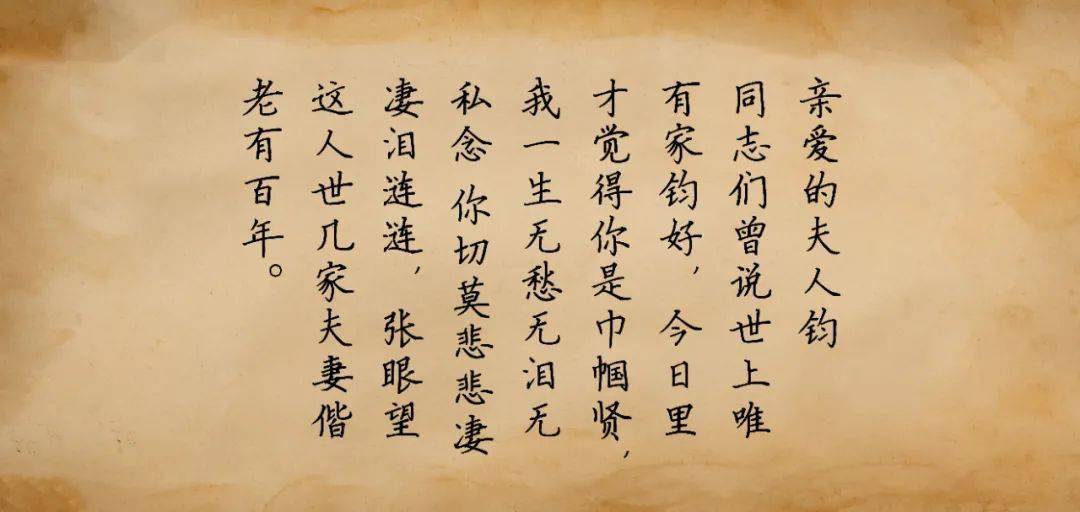 亲爱的夫人钧
同志们曾说世上唯
有家钧好，今日里
才觉得你是巾帼贤，
我一生无愁无泪无
私念 你切莫悲悲凄
凄泪涟涟，张眼望
这人世几家夫妻偕
老有百年。